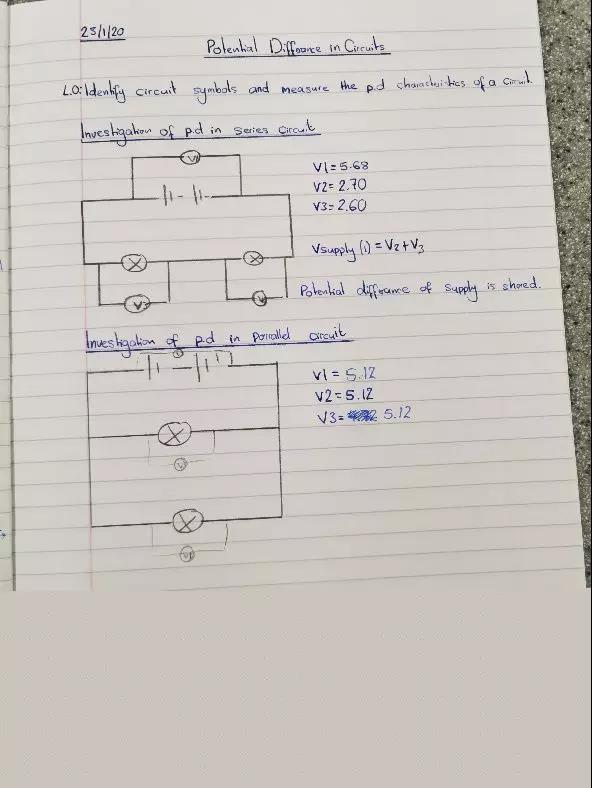 23/1/20
Potential Differance in Circuits
L.O: Identify circuit symbols and measure the p.d characteristics of a circuit.
Investigation of p.d in series circuit
V1
V1 = 5.68
V2 = 2.70
V3 = 2.60
Vsupply (1) = V2 + V3
Potential differance of supply is shared.
Investigation of p.d in Parrallel circuit
V1 = 5.12
V2 = 5.12
V3 = 5.12